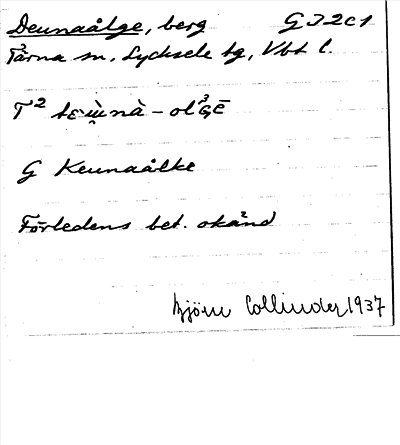 Deunaålge, berg GI2c1
Tärna sn, Lycksele lg, Vbt l.
T²
G Keunaålke
Förledens bet. okänd
Björn Collinder, 1937